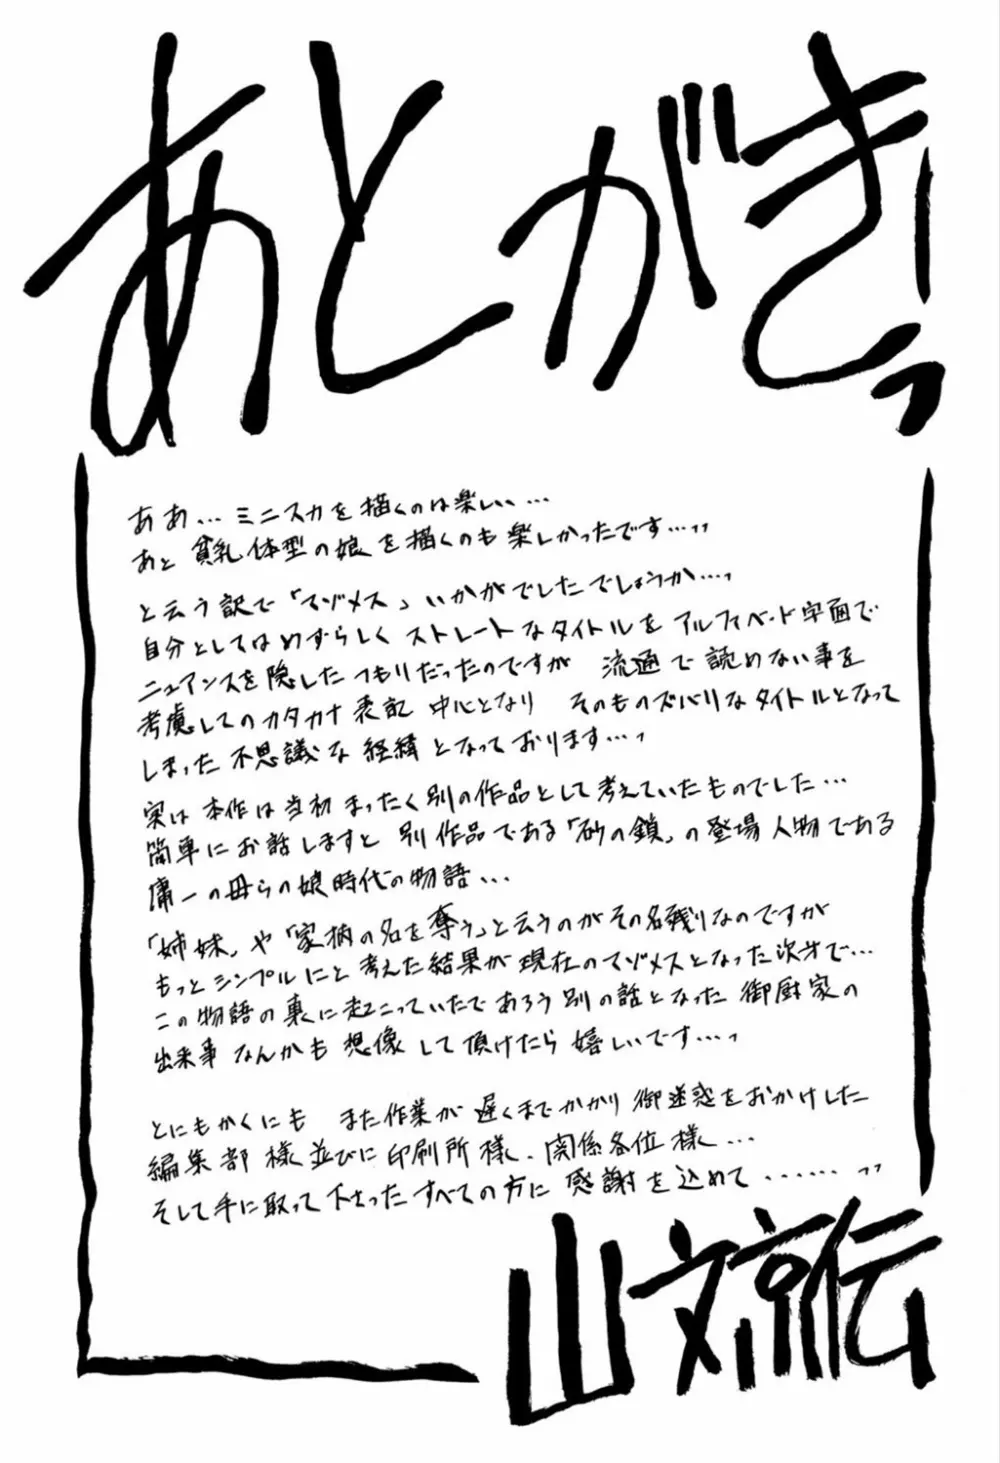 あとがきっ
ああ…ミニスカを描くのは楽しい…
あと貧乳体型の娘を描くのも楽しかったです…っっ
と云う訳で「マゾメス」いかがでしたでしょうか…っ
自分としてはめずらしくストレートなタイトルをアルファベード字面で
ニュアンスを隠したつもりだったのですが 流通で読めない事を
考慮してのカタカナ表記中心となり そのものズバリなタイトルとなって
しまった不思議な経緯となっております…っ
実は本作は当初まったく別の作品として考えていたものでした…
簡単にお話しますと 別作品である「砂の鎖」の登場人物である
庸一の母らの娘時代の物語…
「姉妹」や「家柄の名を奪う」と云うのがその名残りなのですが
もっとシンプルにと考えた結果が現在のマゾメスとなった次才で…
この物語の裏に起こっていたであろう別の話となった御厨家の
出来事なんかも想像して頂けたら嬉しいです…っ
とにもかくにも また作業が遅くまでかかり御迷惑をおかけした
編集部様並びに印刷所様、関係各位様…
そして手に取って下さったすべての方に感謝を込めて………っっ
山文京伝